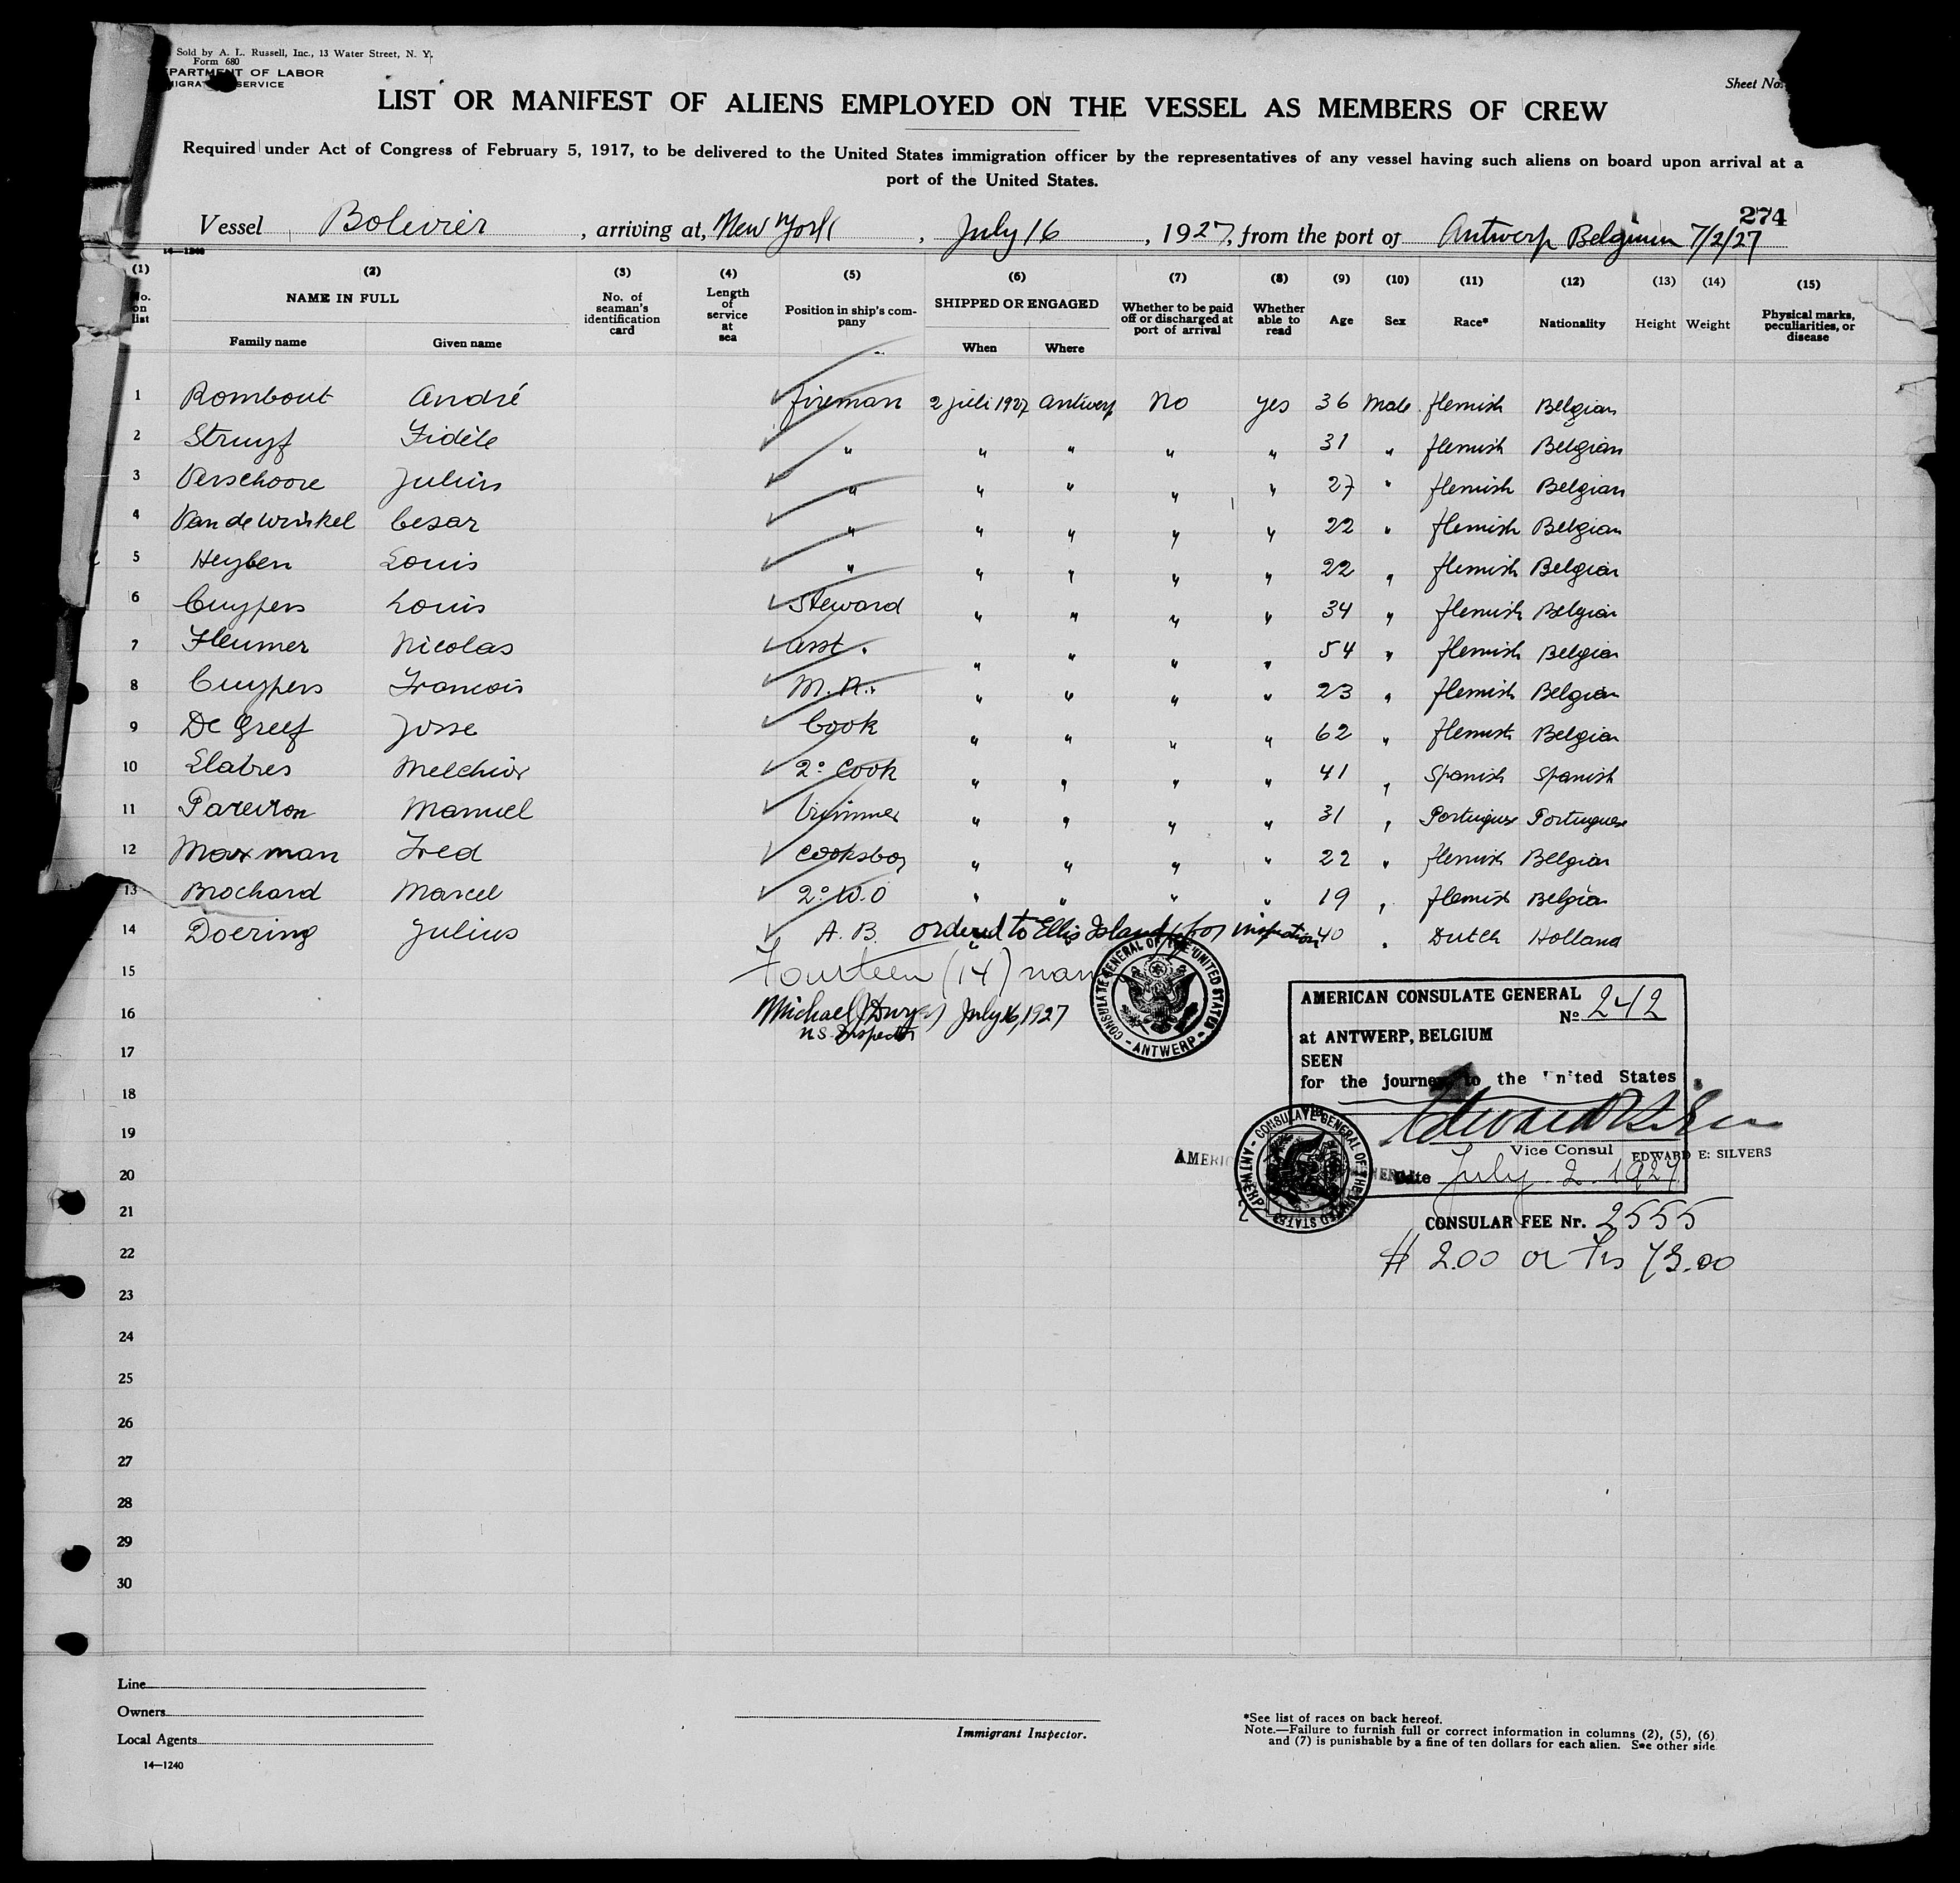 Sold by A. L. Russell, Inc., 13 Water Street, N. Y.
Form 680
PARTMENT OF LABOR
SERVICE
Sheet No.
LIST OR MANIFEST OF ALIENS EMPLOYED ON THE VESSEL AS MEMBERS OF CREW
Required under Act of Congress of February 5, 1917, to be delivered to the United States immigration officer by the representatives of any vessel having such aliens on board upon arrival at a
port of the United States.
274
Vessel Bolivier, arriving at, New York, July 16, 1927, from the port of Antwerp Belgium 7/2/27
14—1240
(1) (2) (3) (4) (5) (6) (7) (8) (9) (10) (11) (12) (13) (14) (15)
No. on list NAME IN FULL Family name Given name No. of seaman's identification card Length of service at sea Position in ship's company SHIPPED OR ENGAGED When Where Whether to be paid off or discharged at port of arrival Whether able to read Age Sex Race* Nationality Height Weight Physical marks, peculiarities, or disease
1 Rombout André fireman 2 juli 1927 Antwerp No yes 36 Male flemish Belgian
2 Struyf Fidèle " " " " " 31 " flemish Belgian
3 Verschoore Julius " " " " " 27 " flemish Belgian
4 Van de Winkel Cesar " " " " " 22 " flemish Belgian
5 Heylen Louis " " " " " 22 " flemish Belgian
6 Cuypers Louis Steward " " " " 34 " flemish Belgian
7 Fleumer Nicolas asst. " " " " 54 " flemish Belgian
8 Cuypers Francois " " " " 23 " flemish Belgian
9 De Greef Josse Cook " " " " 62 " flemish Belgian
10 Llabres Melchior 2° Cook " " " " 41 " Spanish Spanish
11 Manuel trimmer " " " " 31 " Portuguese Portuguese
12 Marxman Fred Cooksboy " " " " 22 " flemish Belgian
13 Brochard Marcel 2° W.O " " " " 19 " flemish Belgian
14 Doering Julius A. B. ordered to Ellis Island for inspection 40 " Dutch Holland
15 Fourteen (14) nam
16 Michael J Dwyer July 16, 1927
U.S. Inspector
17
18
19
20
21
22
23
24
25
26
27
28
29
30
CONSULATE GENERAL OF THE UNITED STATES - ANTWERP -
AMERICAN CONSULATE GENERAL
No 242
at ANTWERP, BELGIUM
SEEN
for the journey to the United States
Vice Consul EDWARD E. SILVERS
Date July 2 1927
CONSULATE GENERAL OF THE UNITED STATES - ANTWERP -
AMERIC
CONSULAR FEE Nr. 2555
$ 2.00 or Frs 73.00
Line
Owners
Local Agents
14—1240
Immigrant Inspector.
*See list of races on back hereof.
Note.—Failure to furnish full or correct information in columns (2), (5), (6)
and (7) is punishable by a fine of ten dollars for each alien. See other side